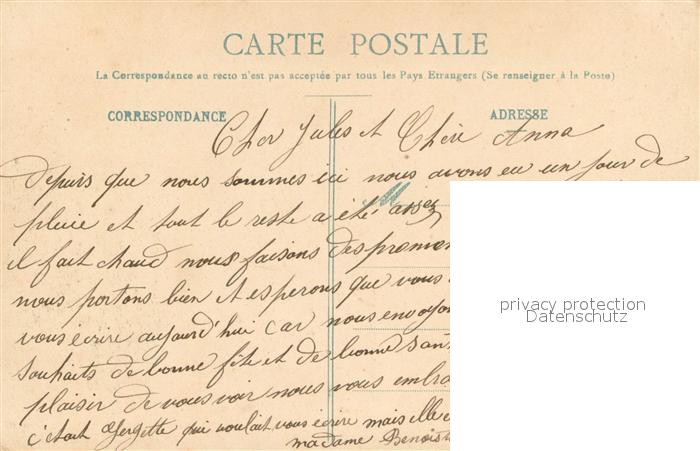 CARTE POSTALE
La Correspondance au recto n'est pas acceptée par tous les Pays Etrangers (Se renseigner à la Poste)
CORRESPONDANCE
ADRESSE
Cher Jules et Chère Anna
depuis que nous sommes ici nous avons eu un jour de
pluie et tout le reste a été assez
il fait chaud nous faisons des promen
nous portons bien et esperons que vous
vous écrire aujourd'hui car nous envoyon
souhaits de bonne fête et de bonne sant
plaisir de vous voir nous vous embra
c'etait qui voulait vous écrire mais elle
madame Benoist
privacy protection
Datenschutz